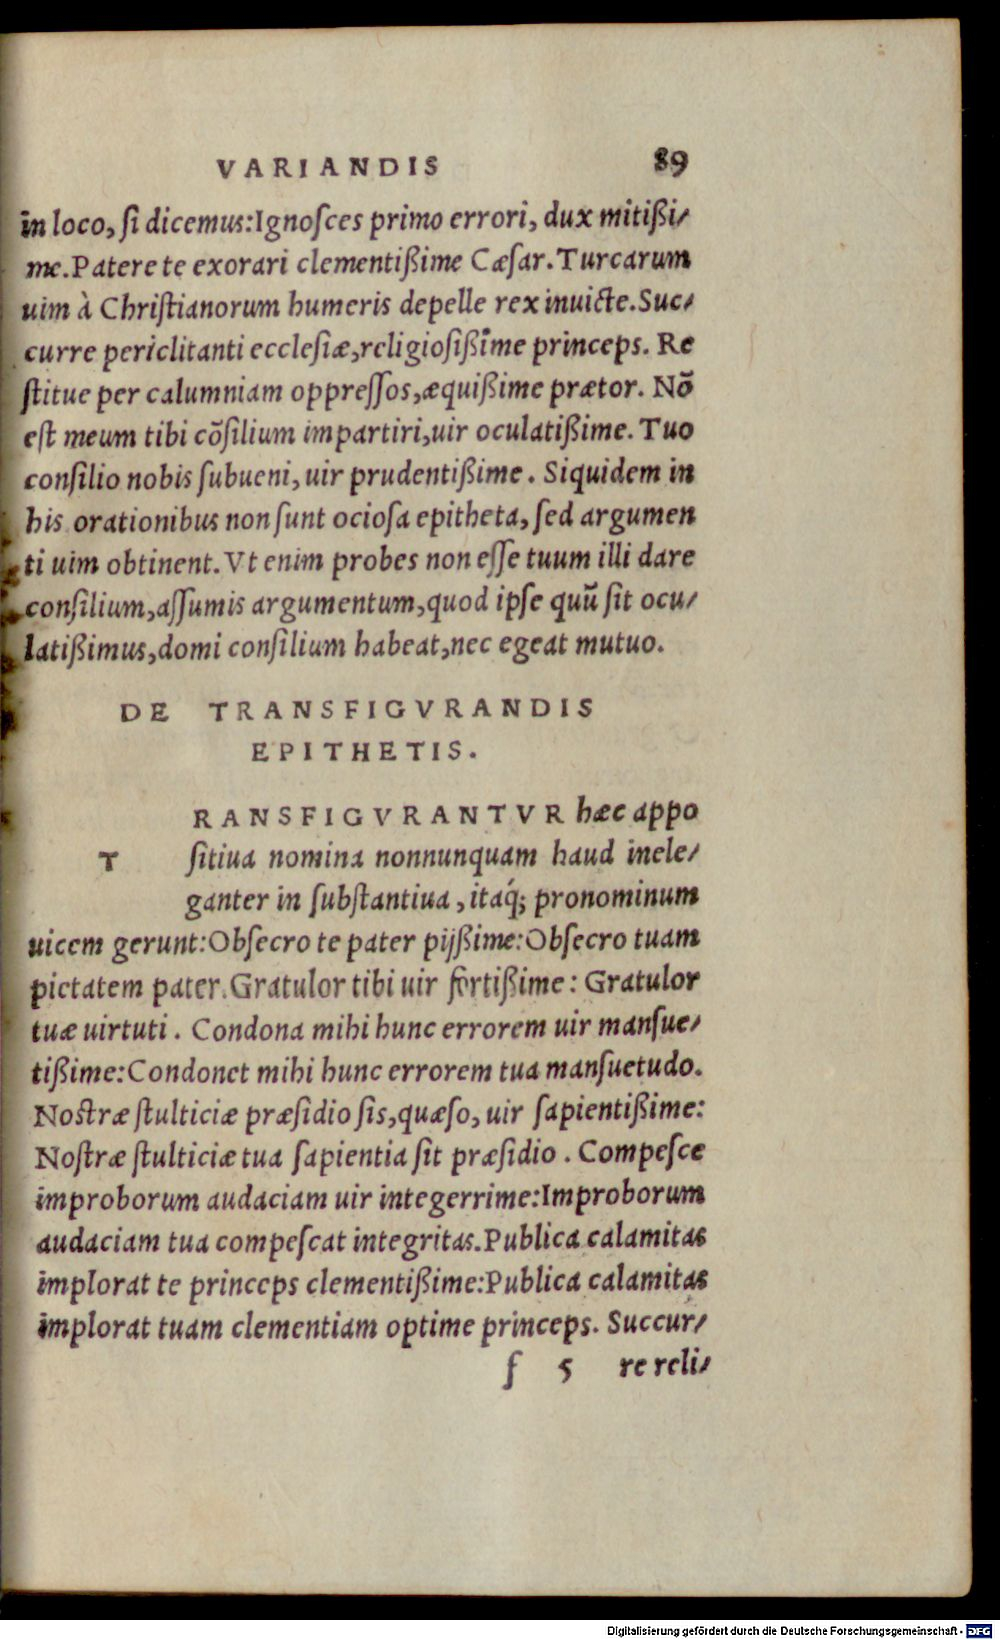 VARIANDIS 89
in loco, ſi dicemus:Ignoſces primo errori, dux mitißi/
me.Patere te exorari clementißime Cæſar.Turcarum
uim à Chriſtianorum humeris depelle rex inuicte.Suc/
curre periclitanti eccleſiæ,religioſißime princeps. Re
ſtitue per calumniam oppreſſos,æquißime prætor. Nõ
eſt meum tibi cõſilium impartiri,uir oculatißime. Tuo
conſilio nobis ſubueni, uir prudentißime. Siquidem in
his orationibus non ſunt ocioſa epitheta, ſed argumen
ti uim obtinent. Vt enim probes non eſſe tuum illi dare
conſilium,aſſumis argumentum,quod ipſe quũ ſit ocu/
latißimus,domi conſilium habeat,nec egeat mutuo.
DE TRANSFIGVRANDIS
EPITHETIS.
RANSFIGVRANTVR hæc appo
T ſitiua nomina nonnunquam haud inele/
ganter in ſubſtantiua, itaq́; pronominum
uicem gerunt:Obſecro te pater pijßime:Obſecro tuam
pietatem pater.Gratulor tibi uir fortißime: Gratulor
tuæ uirtuti. Condona mihi hunc errorem uir manſue/
tißime:Condonet mihi hunc errorem tua manſuetudo.
Noſtræ ſtulticiæ præſidio ſis,quæſo, uir ſapientißime:
Noſtræ ſtulticiæ tua ſapientia ſit præſidio. Compeſce
improborum audaciam uir integerrime:Improborum
audaciam tua compeſcat integritas.Publica calamitas
implorat te princeps clementißime:Publica calamitas
implorat tuam clementiam optime princeps. Succur/
f 5 re reli/
Digitalisierung gefördert durch die Deutsche Forschungsgemeinschaft - DFG